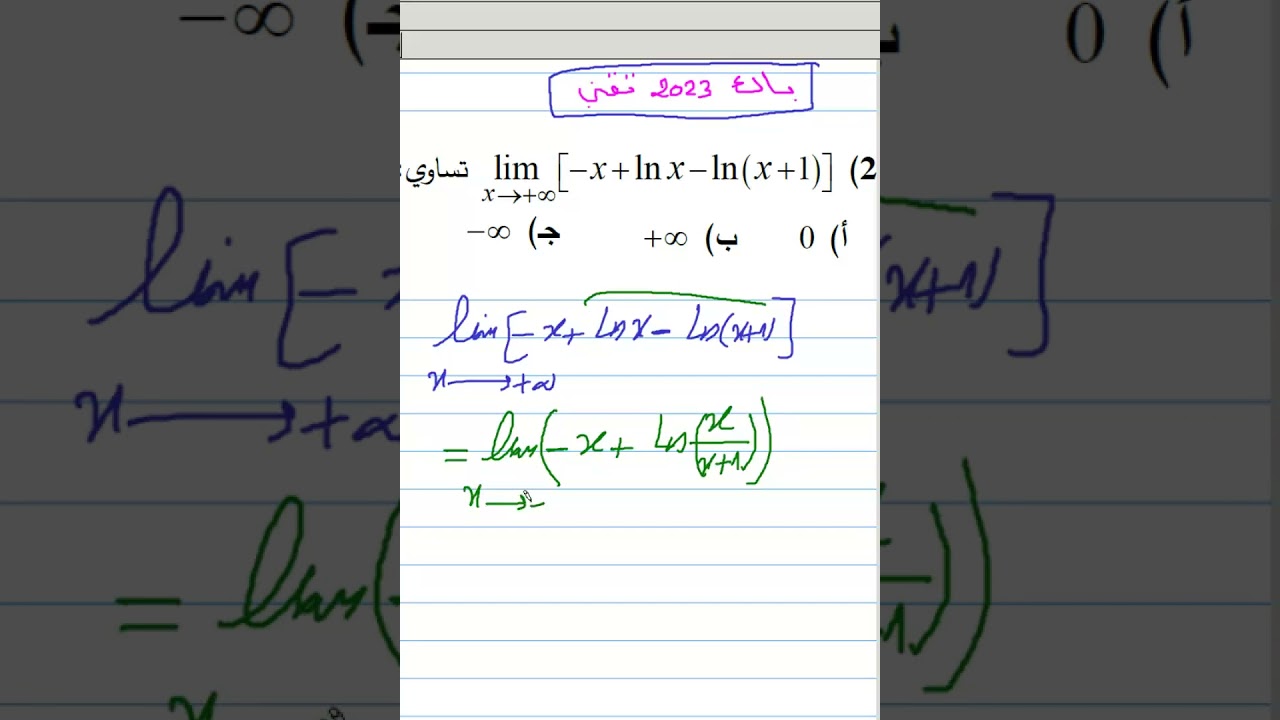 باك 2023 تقني
2) lim x→+∞ [−x + ln x − ln(x+1)] تساوي:
أ) 0 ب) +∞ جـ) −∞
lim x→+∞ [−x + ln x − ln(x+1)]
= lim x→ (−x + ln(x/(x+1)))